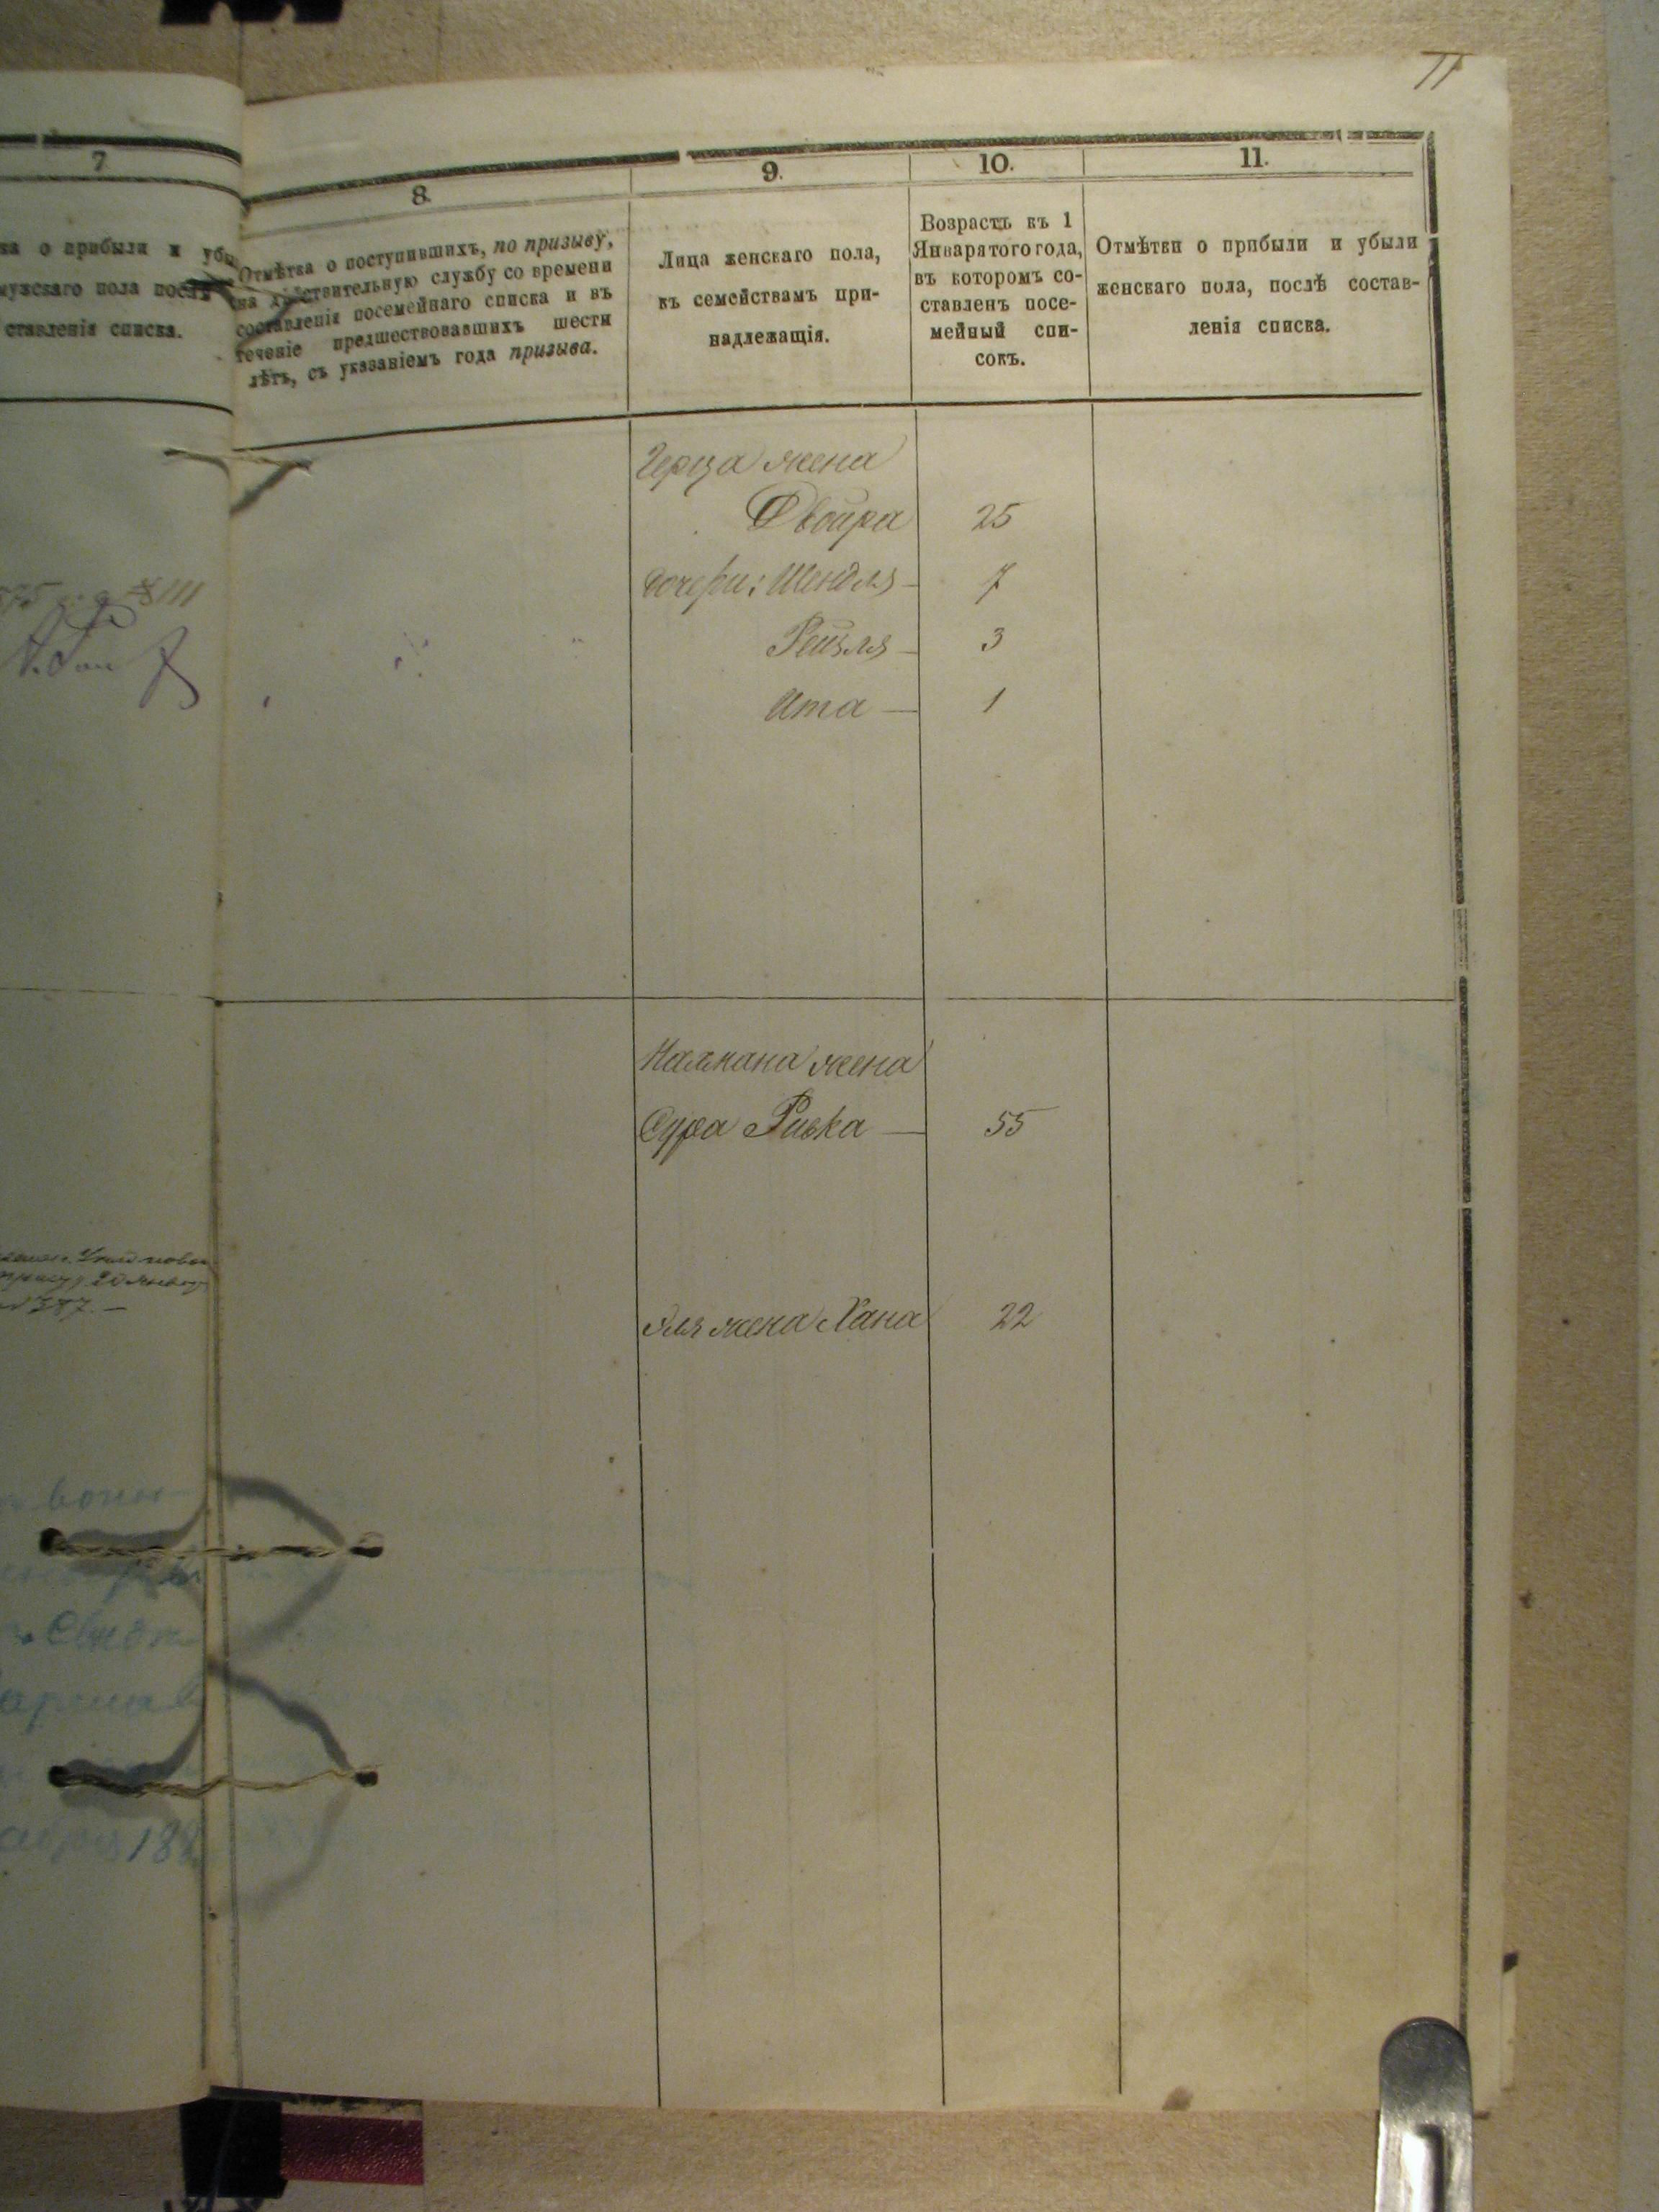 11
7
8.
9.
10.
11.
о прибыли и убы
мужскаго пола послѣ
ставленія списка.
Отмѣтка о поступившихъ, по призыву,
на дѣйствительную службу со времени
составленія посемейнаго списка и въ
теченіе предшествовавшихъ шести
лѣтъ, съ указаніемъ года призыва.
Лица женскаго пола,
къ семействамъ при-
надлежащія.
Возрастъ къ 1
Января того года,
въ которомъ со-
ставленъ посе-
мейный спи-
сокъ.
Отмѣтки о прибыли и убыли
женскаго пола, послѣ состав-
ленія списка.
Герца жена
Двойра 25
дочери: Шендля — 7
Рейзля — 3
Ита — 1
Калмана жена
Сура Ривка — 55
жена Хана 22